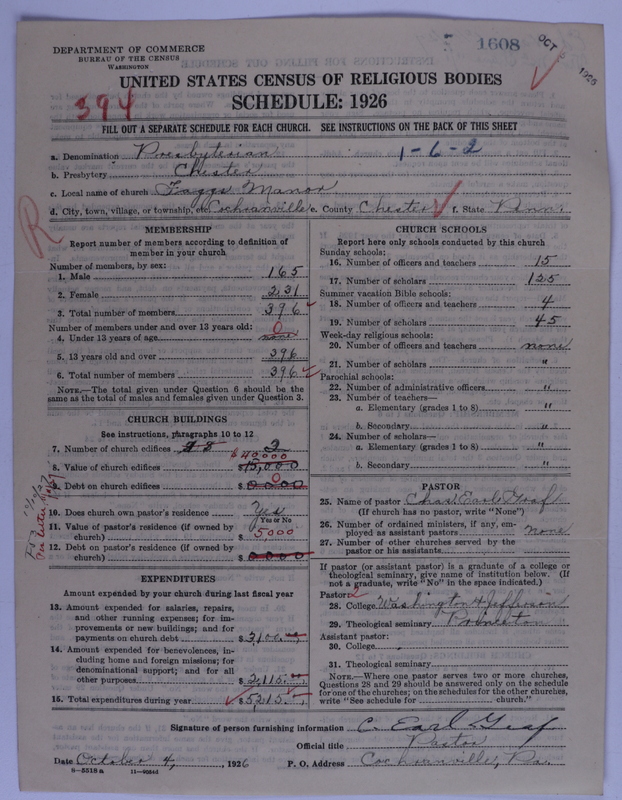 DEPARTMENT OF COMMERCE
BUREAU OF THE CENSUS
WASHINGTON
1608
OCT 1926
UNITED STATES CENSUS OF RELIGIOUS BODIES
SCHEDULE: 1926
394
FILL OUT A SEPARATE SCHEDULE FOR EACH CHURCH. SEE INSTRUCTIONS ON THE BACK OF THIS SHEET
a. Denomination Presbyterian 1-6-2
b. Presbytery Chester
c. Local name of church Faggs Manor
d. City, town, village, or township, etc. Cochranville e. County Chester f. State Penn.
R
MEMBERSHIP
Report number of members according to definition of member in your church
Number of members, by sex:
1. Male 165
2. Female 231
3. Total number of members 396
Number of members under and over 13 years old:
4. Under 13 years of age none 0
5. 13 years old and over 396
6. Total number of members 396
NOTE.—The total given under Question 6 should be
same as the total of males and females given under Question 3.
CHURCH BUILDINGS
See instructions, paragraphs 10 to 12
7. Number of church edifices 2
$40,000
8. Value of church edifices $15,000
9. Debt on church edifices 0
10. Does church own pastor's residence Yes
Yes or No
11. Value of pastor's residence (if owned by
church) $5000
12. Debt on pastor's residence (if owned by
church) $0000
EXPENDITURES
Amount expended by your church during last fiscal year
13. Amount expended for salaries, repairs,
and other running expenses; for im-
provements or new buildings; and for
payments on church debt $3,100.
14. Amount expended for benevolences, in-
cluding home and foreign missions; for
denominational support; and for all
other purposes $2,115.
15. Total expenditures during year $5,215.
CHURCH SCHOOLS
Report here only schools conducted by this church
Sunday schools:
16. Number of officers and teachers 15
17. Number of scholars 125
Summer vacation Bible schools:
18. Number of officers and teachers 4
19. Number of scholars 45
Week-day religious schools:
20. Number of officers and teachers none
21. Number of scholars "
Parochial schools:
22. Number of administrative officers "
23. Number of teachers—
a. Elementary (grades 1 to 8) "
b. Secondary "
24. Number of scholars—
a. Elementary (grades 1 to 8) "
b. Secondary "
PASTOR
25. Name of pastor Chas. Earl Graf
(If church has no pastor, write "None")
26. Number of ordained ministers, if any, em-
ployed as assistant pastors none
27. Number of other churches served by the
pastor or his assistants
If pastor (or assistant pastor) is a graduate of a college or
theological seminary, give name of institution below. (If
not a graduate, write "No" in the space indicated.)
Pastor: 2
28. College Washington & Jefferson
29. Theological seminary Princeton
Assistant pastor:
30. College
31. Theological seminary
NOTE.—Where one pastor serves two or more churches,
Questions 28 and 29 should be answered only on the schedule
for one of the churches; on the schedules for the other churches,
write "See schedule for church."
Signature of person furnishing information C. Earl Graf
Official title Pastor
Date October 4, 1926 P. O. Address Cochranville, Pa.
8—5518a 11—40646